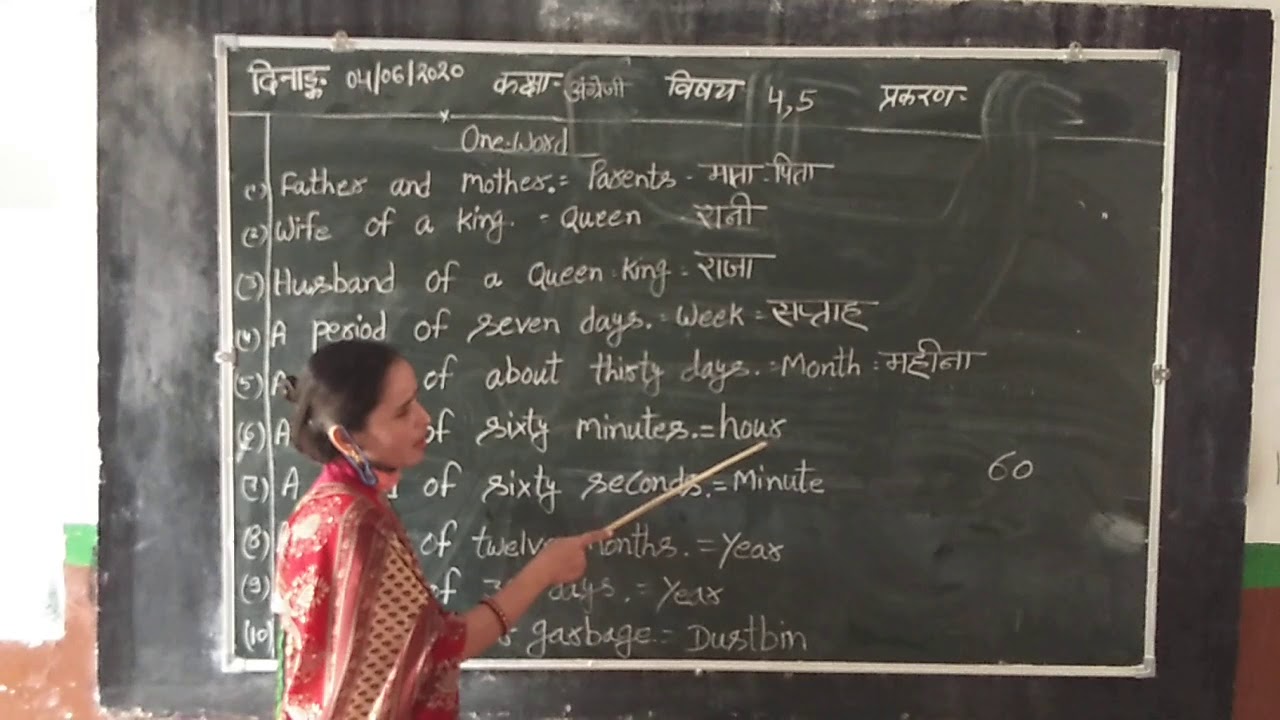 दिनाङ्क 04/06/2020 कक्षा- अंग्रेजी विषय 4,5 प्रकरण-
One-Word
(1) Father and mother.= Parents - माता-पिता
(2) Wife of a king. - Queen - रानी
(3) Husband of a Queen-King = राजा
(4) A period of seven days.=Week = सप्ताह
(5) A of about thirty days.=Month = महीना
(6) A of sixty minutes.=hour
A of sixty seconds.=Minute 60
(8) of twelve months. = Year
(9) of days. = Year
(10) garbage = Dustbin